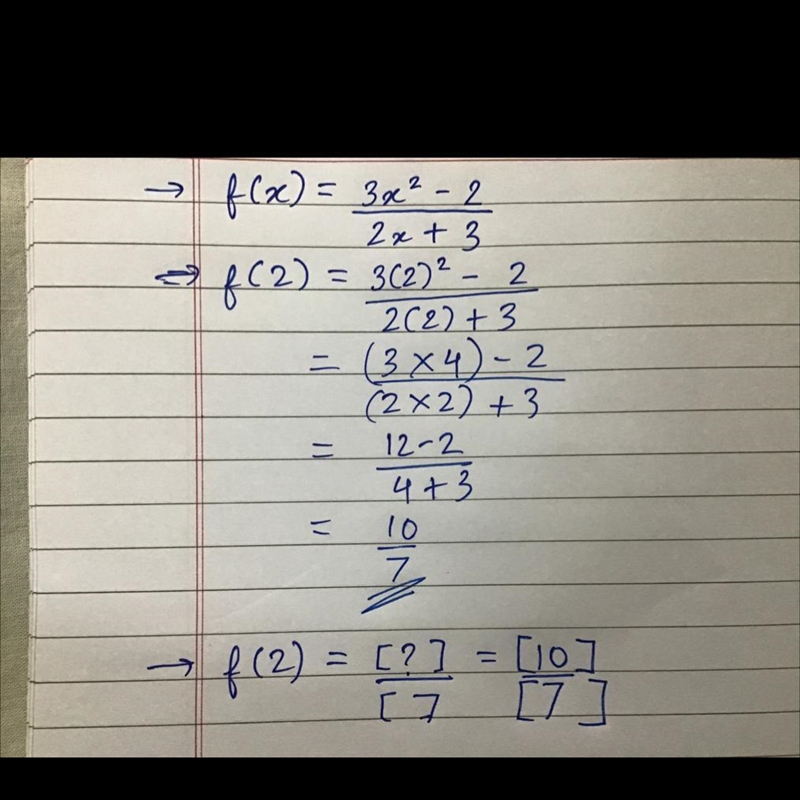 → f(x) = 3x² - 2 / 2x + 3
⇔ f(2) = 3(2)² - 2 / 2(2) + 3
= (3 × 4) - 2 / (2 × 2) + 3
= 12 - 2 / 4 + 3
= 10 / 7
→ f(2) = [?] / [7 = [10] / [7]